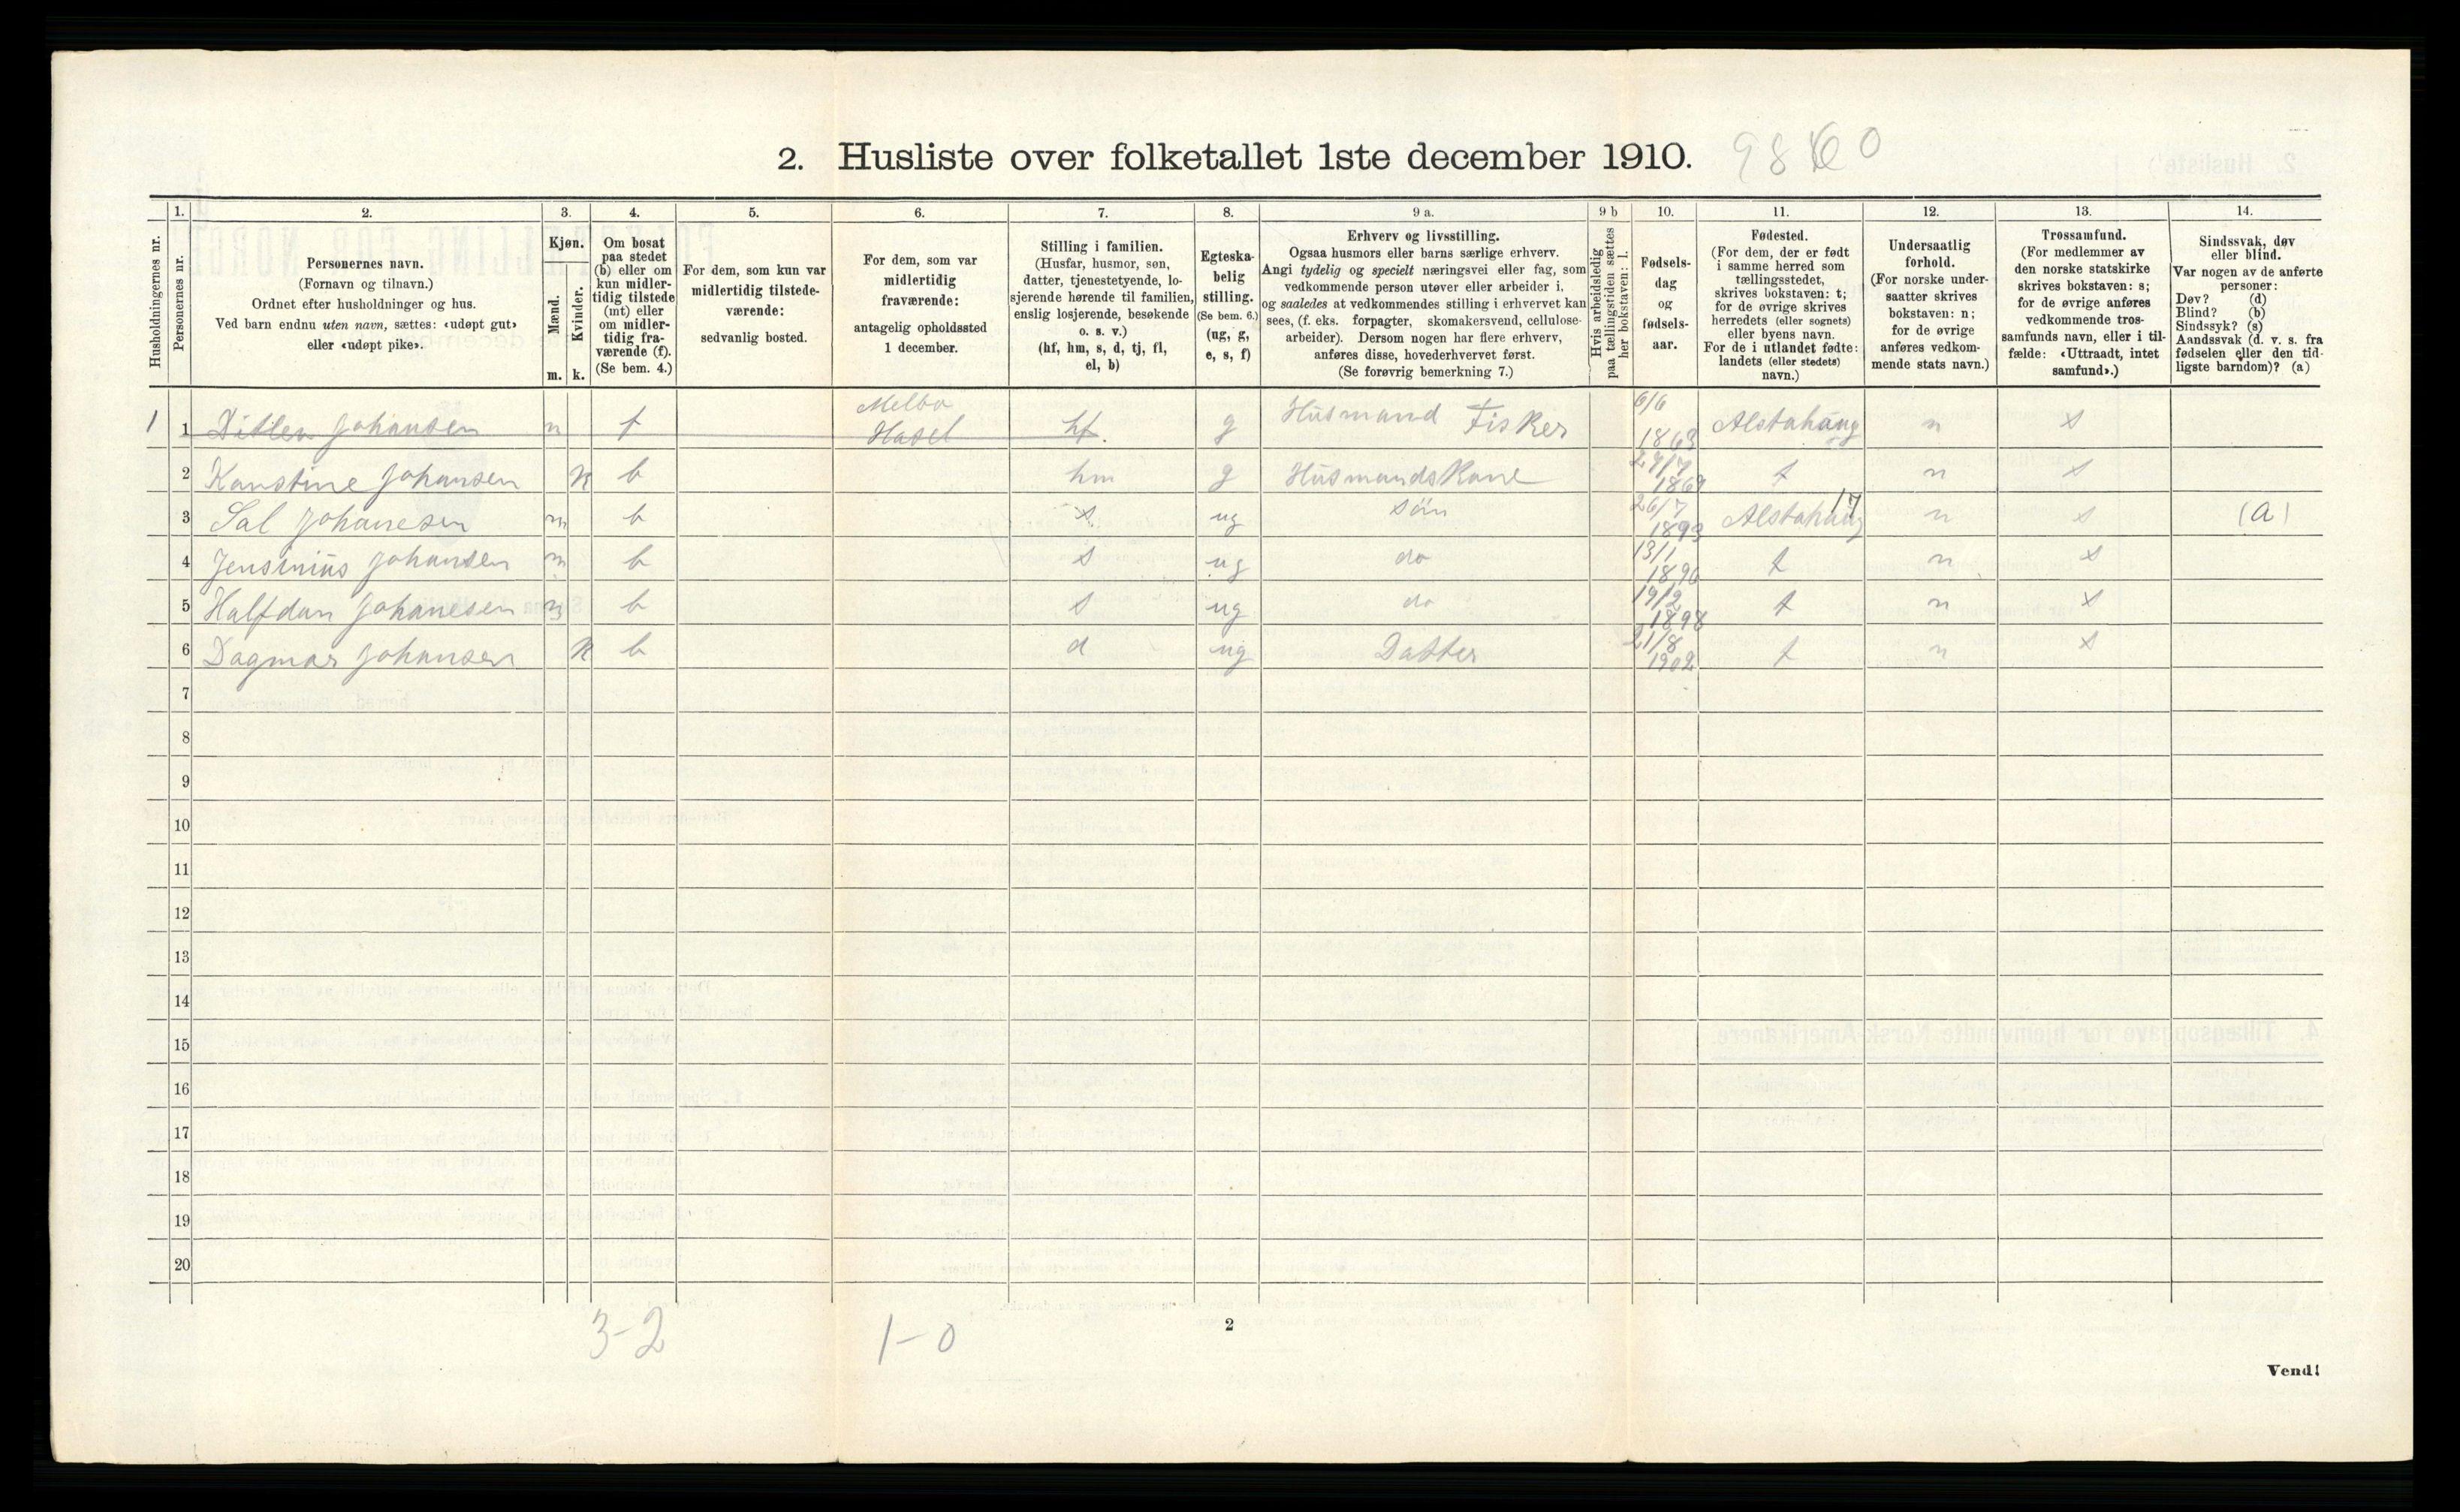 2. Husliste over folketallet 1ste december 1910.
9860
1. 2. 3. 4. 5. 6. 7. 8. 9 a. 9 b 10. 11. 12. 13. 14.
Husholdningernes nr.
Personernes nr.
Personernes navn.
(Fornavn og tilnavn.)
Ordnet efter husholdninger og hus.
Ved barn endnu uten navn, sættes: «udøpt gut»
eller «udøpt pike».
Kjøn.
Mænd.
Kvinder.
m. k.
Om bosat
paa stedet
(b) eller om
kun midler-
tidig tilstede
(mt) eller
om midler-
tidig fra-
værende (f).
(Se bem. 4.)
For dem, som kun var
midlertidig tilstede-
værende:
sedvanlig bosted.
For dem, som var
midlertidig
fraværende:
antagelig opholdssted
1 december.
Stilling i familien.
(Husfar, husmor, søn,
datter, tjenestetyende, lo-
sjerende hørende til familien,
enslig losjerende, besøkende
o. s. v.)
(hf, hm, s, d, tj, fl,
el, b)
Egteska-
belig
stilling.
(Se bem. 6.)
(ug, g,
e, s, f)
Erhverv og livsstilling.
Ogsaa husmors eller barns særlige erhverv.
Angi tydelig og specielt næringsvei eller fag, som
vedkommende person utøver eller arbeider i,
og saaledes at vedkommendes stilling i erhvervet kan
sees, (f. eks. forpagter, skomakersvend, cellulose-
arbeider). Dersom nogen har flere erhverv,
anføres disse, hovederhvervet først.
(Se forøvrig bemerkning 7.)
Hvis arbeidsledig
paa tællingstiden sættes
her bokstaven: l.
Fødsels-
dag
og
fødsels-
aar.
Fødested.
(For dem, der er født
i samme herred som
tællingsstedet,
skrives bokstaven: t;
for de øvrige skrives
herredets (eller sognets)
eller byens navn.
For de i utlandet fødte:
landets (eller stedets)
navn.)
Undersaatlig
forhold.
(For norske under-
saatter skrives
bokstaven: n;
for de øvrige
anføres vedkom-
mende stats navn.)
Trossamfund.
(For medlemmer av
den norske statskirke
skrives bokstaven: s;
for de øvrige anføres
vedkommende tros-
samfunds navn, eller i til-
fælde: «Uttraadt, intet
samfund».)
Sindssvak, døv
eller blind.
Var nogen av de anførte
personer:
Døv? (d)
Blind? (b)
Sindssyk? (s)
Aandssvak (d. v. s. fra
fødselen eller den tid-
ligste barndom)? (a)
1 1 Ditlev Johansen m f Melbo Hasel hf. g Husmand Fisker 6/6 1863 Alstahaug n s
2 Konstine Johansen k b hm g Husmands Kone 27/7 1869 t n s
3 Sal Johanesen m b s ug søn 26/7 1893 Alstahaug 17 n s (a)
4 Jensinius Johansen m b s ug do 13/1 1896 t n s
5 Halfdan Johanesen m b s ug do 19/2 1898 t n s
6 Dagmar Johansen k b d ug Datter 21/8 1902 t n s
7
8
9
10
11
12
13
14
15
16
17
18
19
20
3-2 1-0
2
Vend!